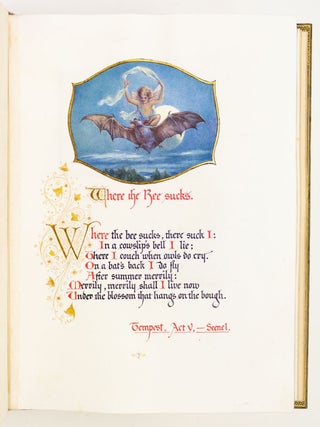 Where the Bee sucks.
Where the bee sucks, there suck I:
In a cowslip's bell I lie;
There I couch when owls do cry.
On a bat's back I do fly
After summer merrily:
Merrily, merrily shall I live now
Under the blossom that hangs on the bough.
Tempest. Act V.—Scene I.